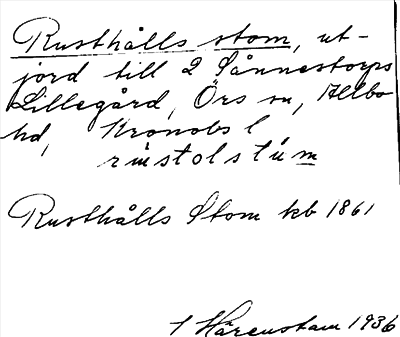 Rusthålls stom, ut-
jord till 2 Sånnestorps
Lillegård, Örs sn, Allbo
hd, Kronobs l
rústolstúm
Rusthålls Stom kb 1861
Härenstam 1936